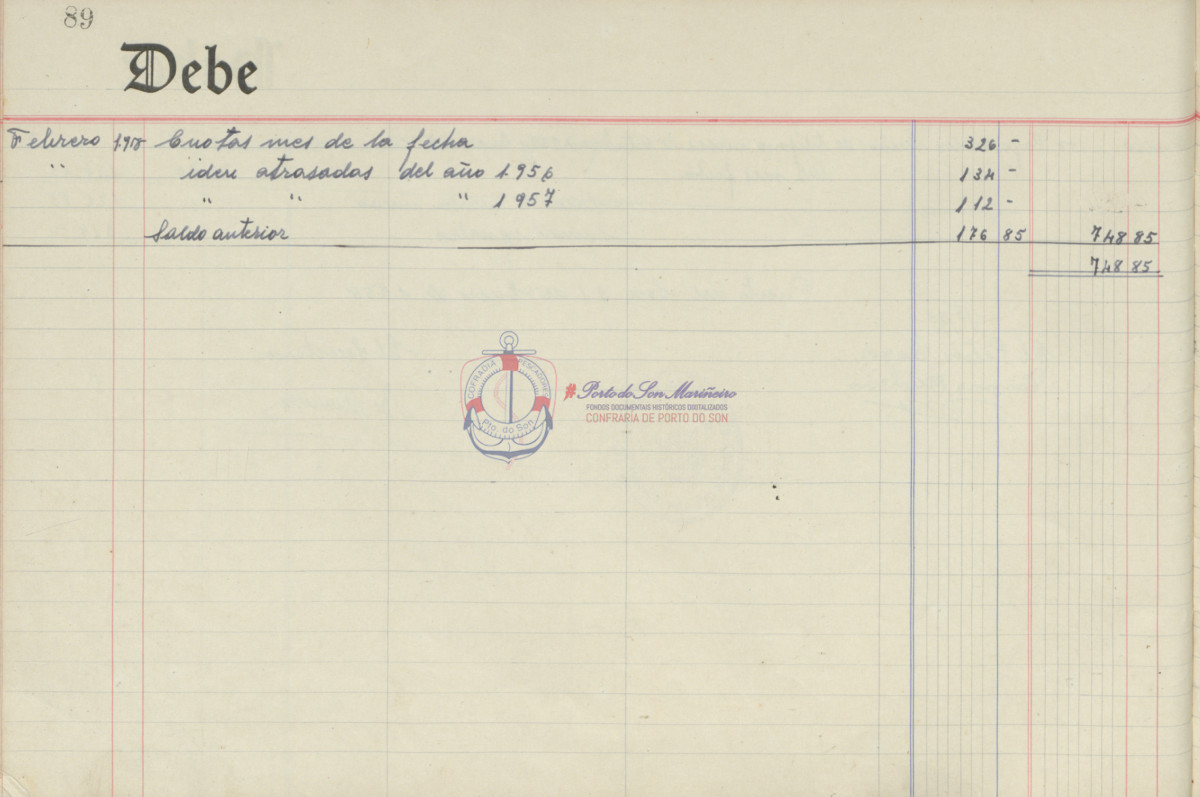 89
Debe
Febrero 1958 Cuotas mes de la fecha 326 -
" idem atrasadas del año 1956 134 -
" " " 1957 112 -
Saldo anterior 176 85 748 85
748 85
COFRADIA PESCADORES
Pto. do Son
#Porto do Son Mariñeiro
FONDOS DOCUMENTAIS HISTÓRICOS DIXITALIZADOS
CONFRARÍA DE PORTO DO SON